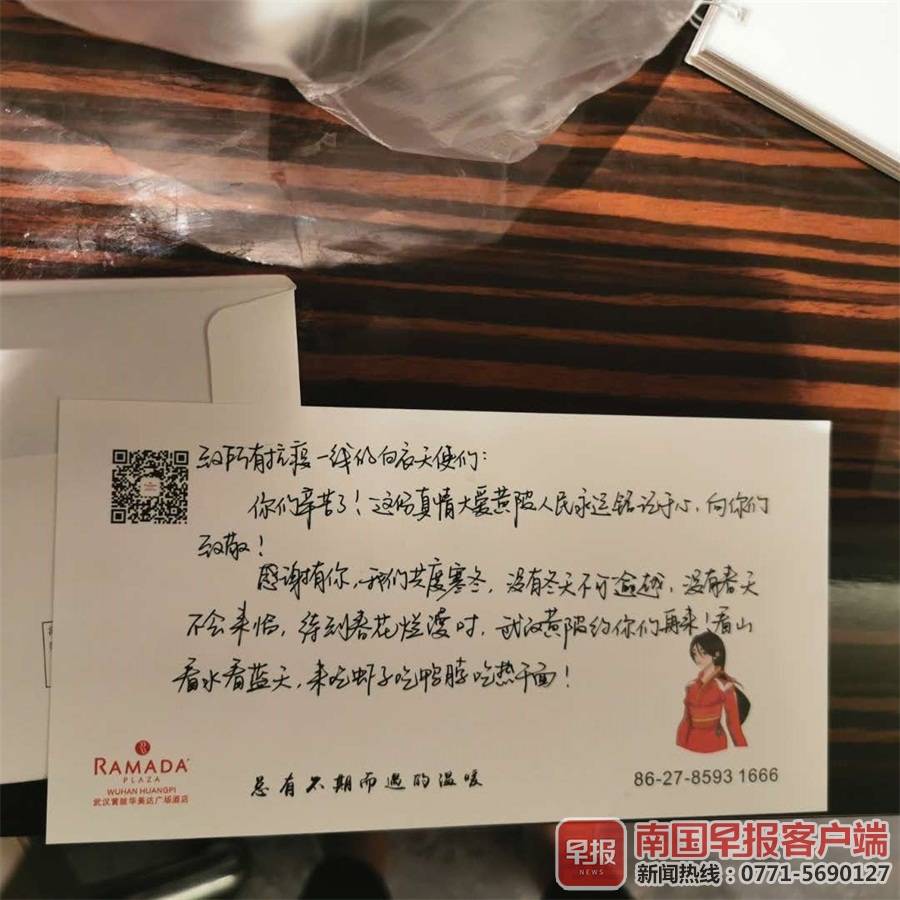 致所有抗疫一线的白衣天使们:
你们辛苦了!这份真情大爱黄陂人民永远铭记于心,向你们
致敬!
感谢有你,我们共度寒冬,没有冬天不可逾越,没有春天
不会来临,待到春花烂漫时,武汉黄陂约你们再来!看山
看水看蓝天,来吃虾子吃鸭脖吃热干面!
RAMADA
PLAZA
WUHAN HUANGPI
武汉黄陂华美达广场酒店
总有不期而遇的温暖
86-27-8593 1666
早报
NEWS
南国早报客户端
新闻热线:0771-5690127